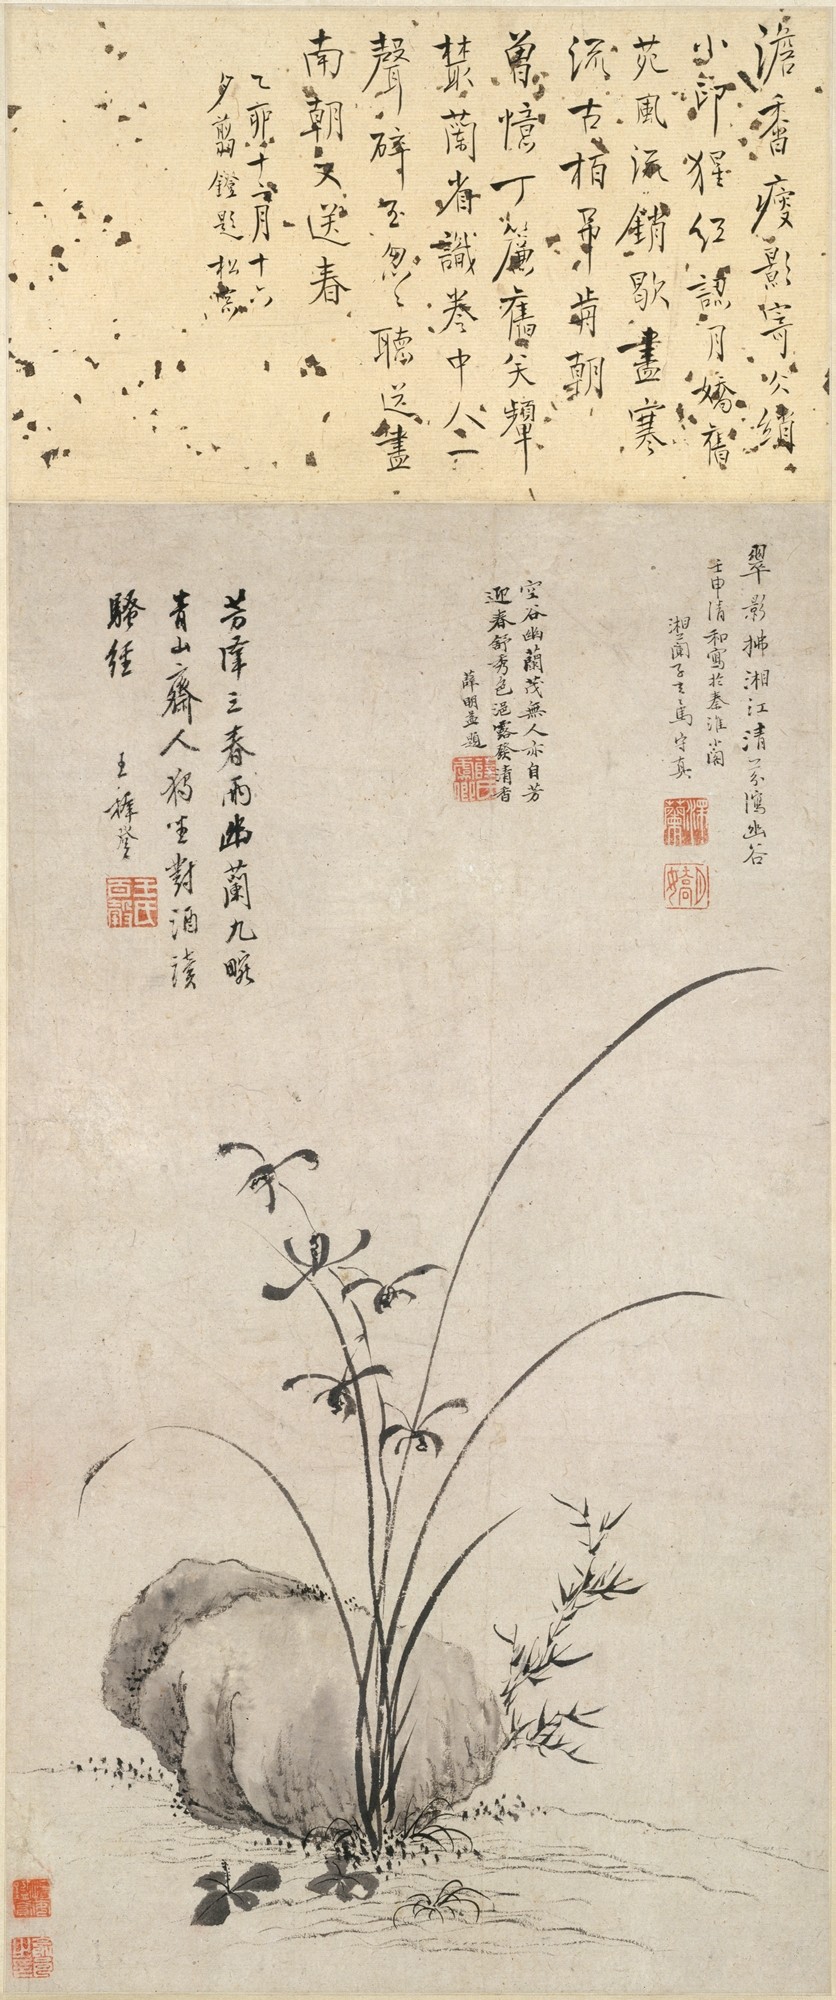 澹香瘦影寄冰綃
小印猩紅認月嬌舊
苑風流銷歇盡寒
流古柏弔前朝
曾憶丁簾舊笑顰
叢蘭省識卷中人一
聲磔至匆匆聽送盡
南朝又送春
乙卯十二月十六
夕翦鐙題松
翠影拂湘江清芬瀉幽谷
壬申清和寫於秦淮小閣
湘蘭子馬守真
空谷幽蘭茂無人亦自芳
迎春舒秀色浥露發清香
薛明益題
芳澤三春雨幽蘭九畹
青山齋人獨坐對酒讀
騷經
王穉登
王氏百穀
月嬌